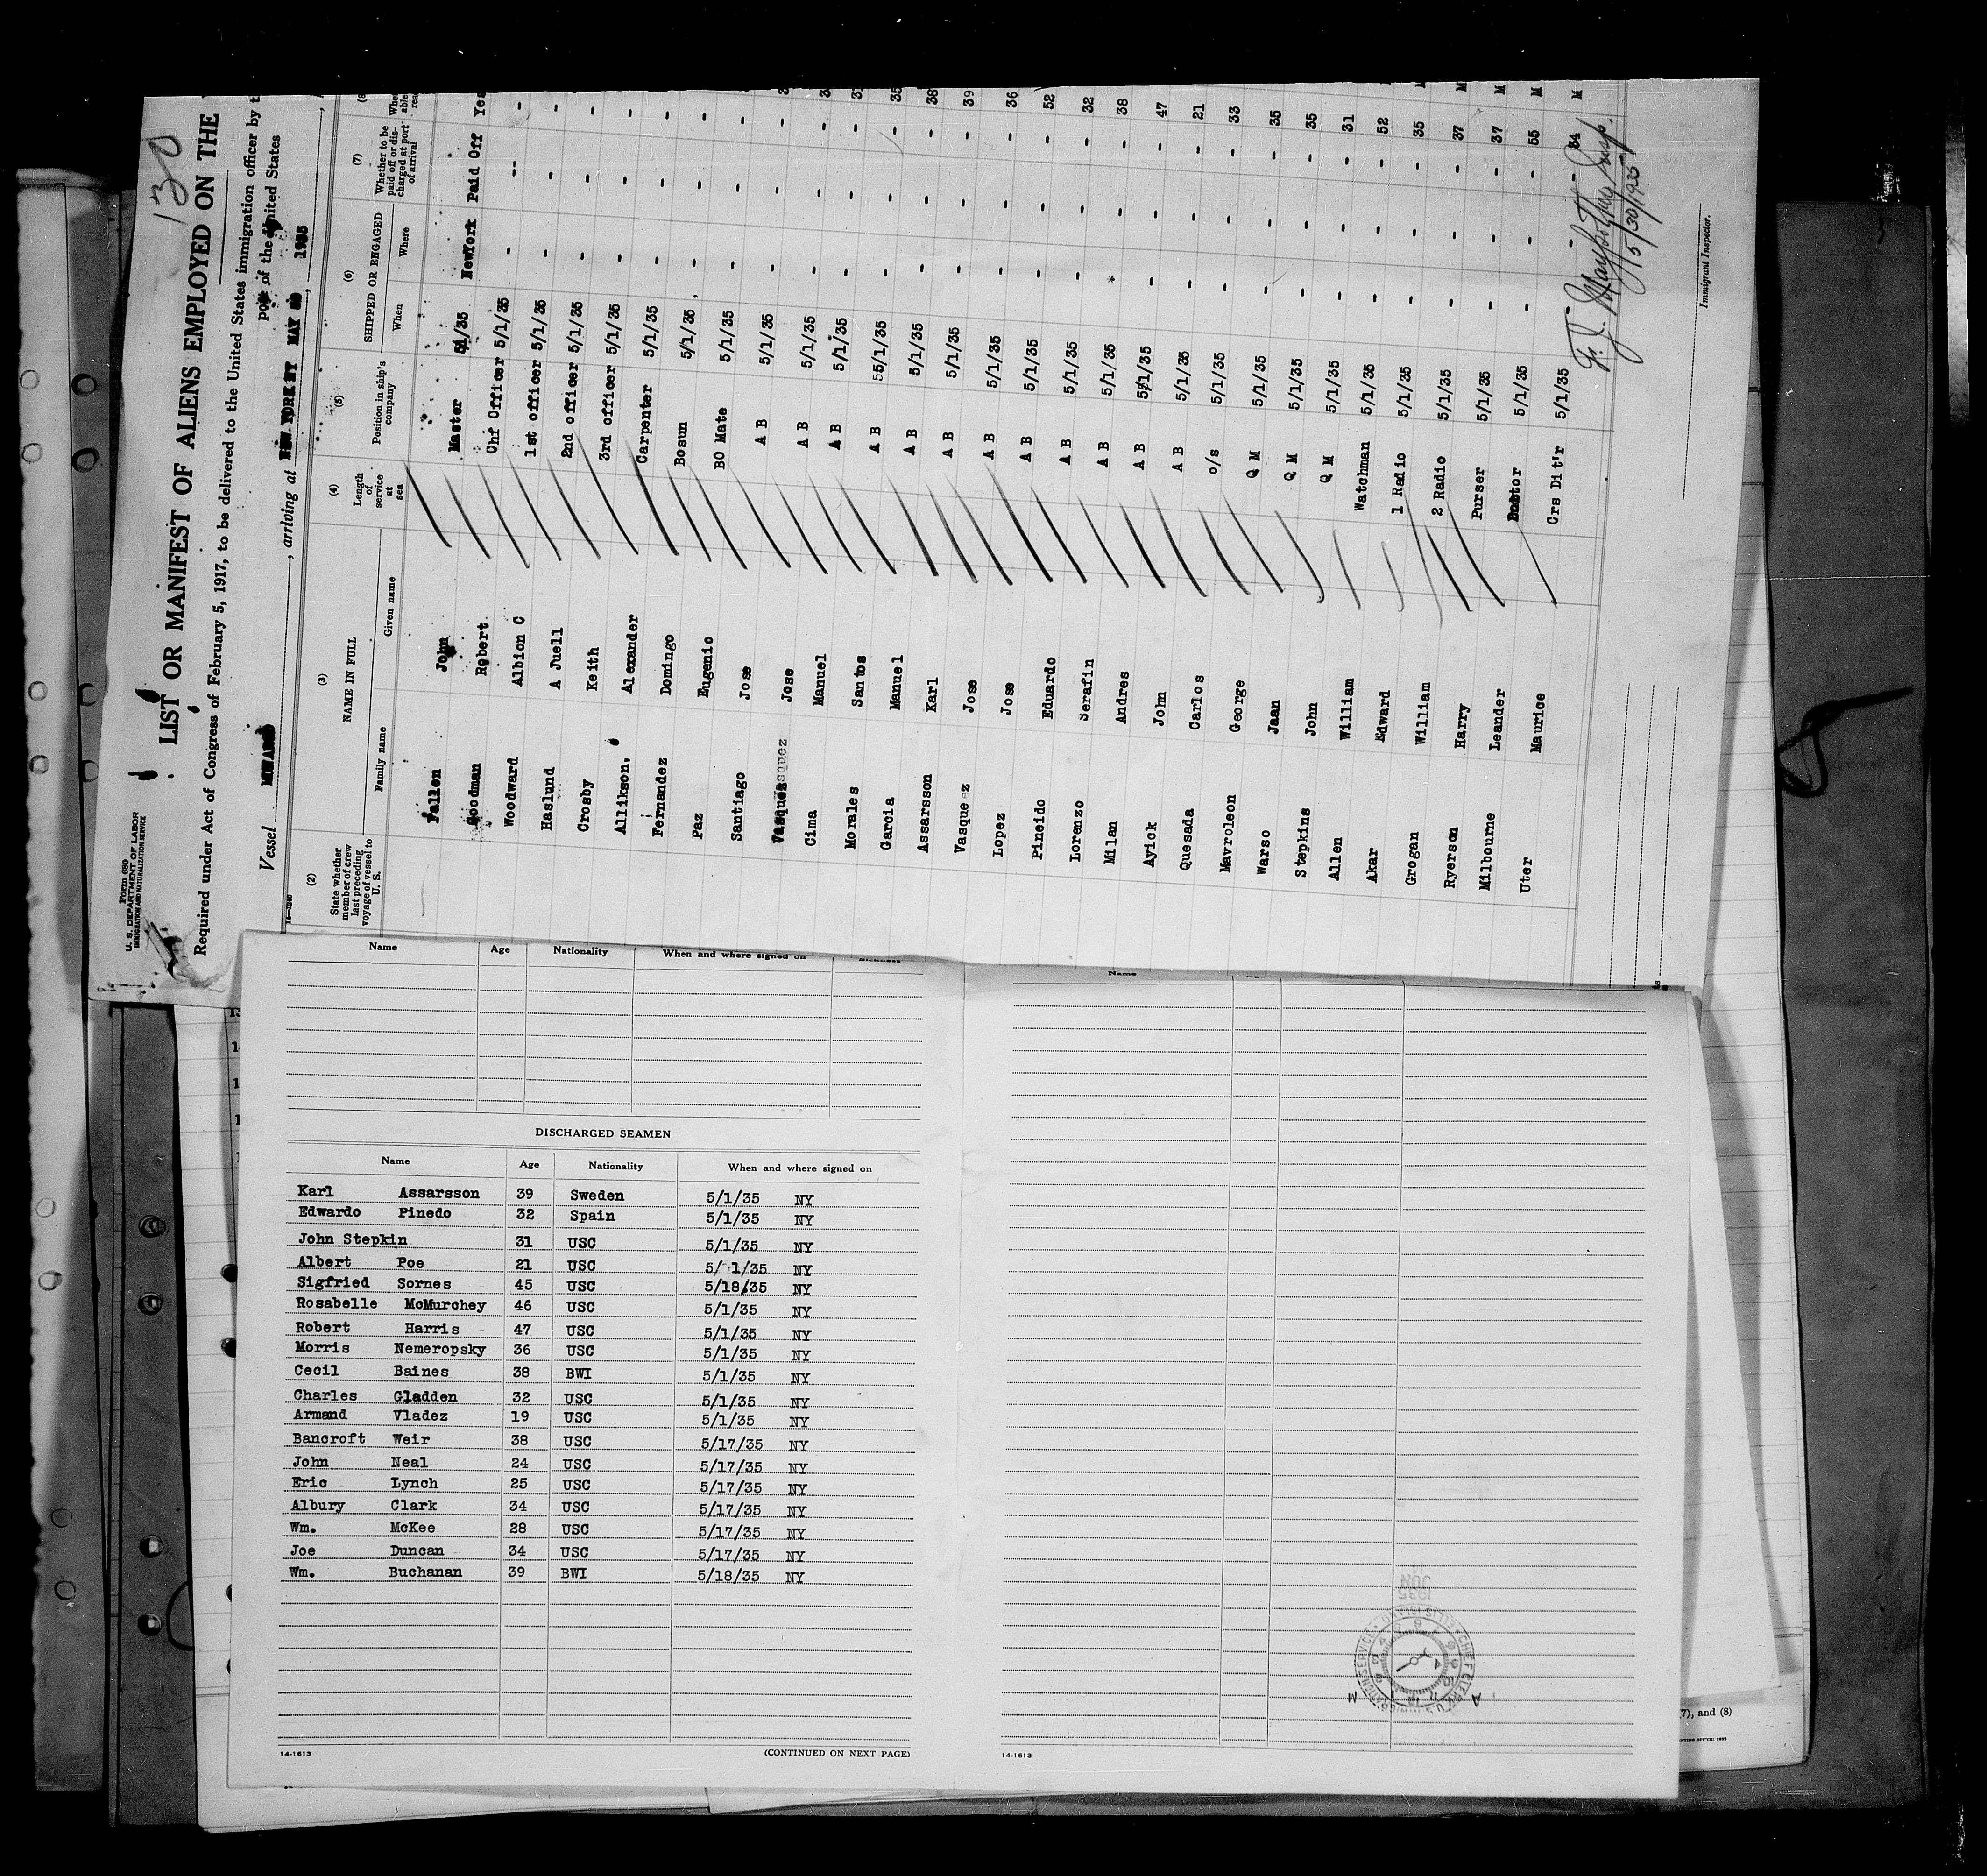 130
Form 689
U. S. DEPARTMENT OF LABOR
IMMIGRATION AND NATURALIZATION SERVICE
LIST OR MANIFEST OF ALIENS EMPLOYED ON THE
Required under Act of Congress of February 5, 1917, to be delivered to the United States immigration officer by
port of the United States
Vessel , arriving at NEW YORK NY MAY 1935 ,
14—1240
(2) (3) (4) (5) (6) (7) (8)
State whether member of crew last preceding voyage of vessel to U. S.
NAME IN FULL
Family name Given name
Length of service at sea
Position in ship's company
SHIPPED OR ENGAGED
When Where
Whether to be paid off or discharged at port of arrival
Fallen John Master 5/1/35 NewYork Paid Off Yes
Goodman Robert Chf Officer 5/1/35 - -- -
Woodward Albion C 1st officer 5/1/35 - - -
Haslund A Juell 2nd officer 5/1/35 - - -
Crosby Keith 3rd officer 5/1/35 - - -
Allikson, Alexander Carpenter 5/1/35 - - -
Fernandez Domingo Bosun 5/1/35 - - -
Paz Eugenio BO Mate 5/1/35 - - -
Santiago Jose A B 5/1/35 - - -
Vasquez Jose A B 5/1/35 - - -
Cima Manuel A B 5/1/35 - - -
Morales Santos A B 55/1/35 - - - 35
Garcia Manuel A B 5/1/35 - - - 38
Assarsson Karl A B 5/1/35 - - - 39
Vasquez Jose A B 5/1/35 - - - 36
Lopez Jose A B 5/1/35 - - - 52
Pineido Eduardo A B 5/1/35 - - - 32
Lorenzo Serafin A B 5/1/35 - - - 38
Milan Andres A B 5/1/35 - - - 47
Ayick John A B 5/1/35 - - - 21
Quesada Carlos o/s 5/1/35 - - - 33
Mavroleon George Q M 5/1/35 - - - 35
Warso Jaan Q M 5/1/35 - - - 35
Stepkins John Q M 5/1/35 - - - 31
Allen William Watchman 5/1/35 - - - 52
Akar Edward 1 Radio 5/1/35 - - - 35
Grogan William 2 Radio 5/1/35 - - - 37 M
Ryerson Harry Purser 5/1/35 - - - 37 M
Milbourne Leander Doctor 5/1/35 - - - 55 M
Uter Maurice Crs Dit'r 5/1/35 - - - 34 M
5/30/1935
Immigrant Inspector.
Name Age Nationality When and where signed on
Name
DISCHARGED SEAMEN
Name Age Nationality When and where signed on
Karl Assarsson 39 Sweden 5/1/35 NY
Edwardo Pinedo 32 Spain 5/1/35 NY
John Stepkin 31 USC 5/1/35 NY
Albert Poe 21 USC 5/ 1/35 NY
Sigfried Sornes 45 USC 5/18/35 NY
Rosabelle McMurchey 46 USC 5/1/35 NY
Robert Harris 47 USC 5/1/35 NY
Morris Nemeropsky 36 USC 5/1/35 NY
Cecil Baines 38 BWI 5/1/35 NY
Charles Gladden 32 USC 5/1/35 NY
Armand Vladez 19 USC 5/1/35 NY
Bancroft Weir 38 USC 5/17/35 NY
John Neal 24 USC 5/17/35 NY
Eric Lynch 25 USC 5/17/35 NY
Albury Clark 34 USC 5/17/35 NY
Wm. McKee 28 USC 5/17/35 NY
Joe Duncan 34 USC 5/17/35 NY
Wm. Buchanan 39 BWI 5/18/35 NY
14-1613 (CONTINUED ON NEXT PAGE)
14-1613
JUN
1935
7), and (8)